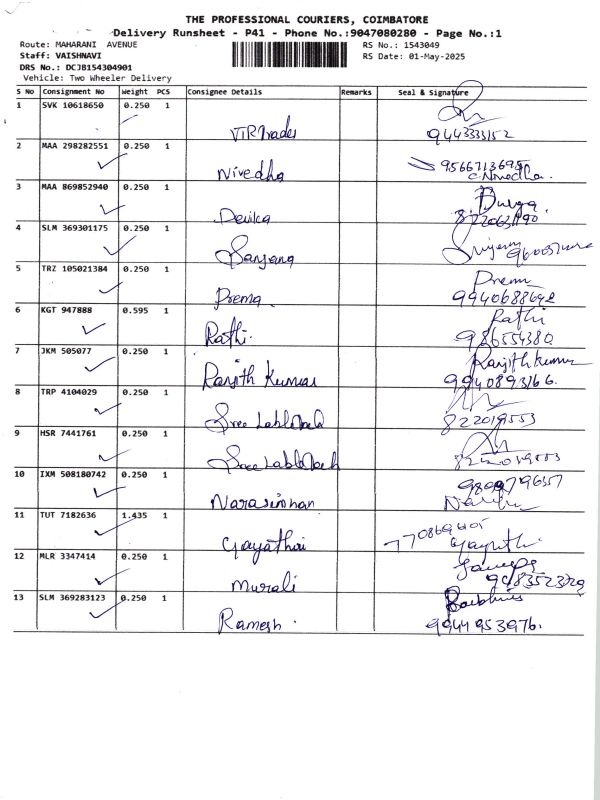 THE PROFESSIONAL COURIERS, COIMBATORE
Delivery Runsheet - P41 - Phone No.:9047080280 - Page No.:1
Route: MAHARANI AVENUE
RS No.: 1543049
Staff: VAISHNAVI
RS Date: 01-May-2025
DRS No.: DCJB154304901
Vehicle: Two Wheeler Delivery
S No Consignment No Weight PCS Consignee Details Remarks Seal & Signature
1 SVK 10618650 0.250 1
VTR Trades 9443333152
2 MAA 298282551 0.250 1
Nivedha 9566713695
C. Nivedha.
3 MAA 869852940 0.250 1
Durga
Devika
4 SLM 369301175 0.250 1
Sanjana
5 TRZ 105021384 0.250 1
Prema
Prema. 9940688642
6 KGT 947888 0.595 1
Rathi
Rathi. 986554380
7 JKM 505077 0.250 1
Ranjith Kumar
Ranjith Kumar 9940893166.
8 TRP 4104029 0.250 1
Sree 822019553
9 HSR 7441761 0.250 1
Sree
10 IXM 508180742 0.250 1
Narasimhan
11 TUT 7182636 1.435 1
Gayathri
12 MLR 3347414 0.250 1
Murali
13 SLM 369283123 0.250 1
Ramesh. 9944953976.